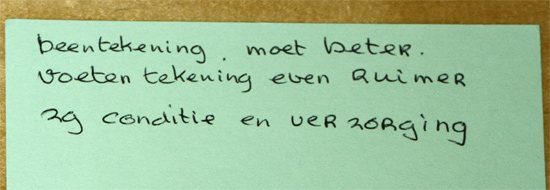 beentekening. moet beter.
voeten tekening even Ruimer
zg conditie en verzorging